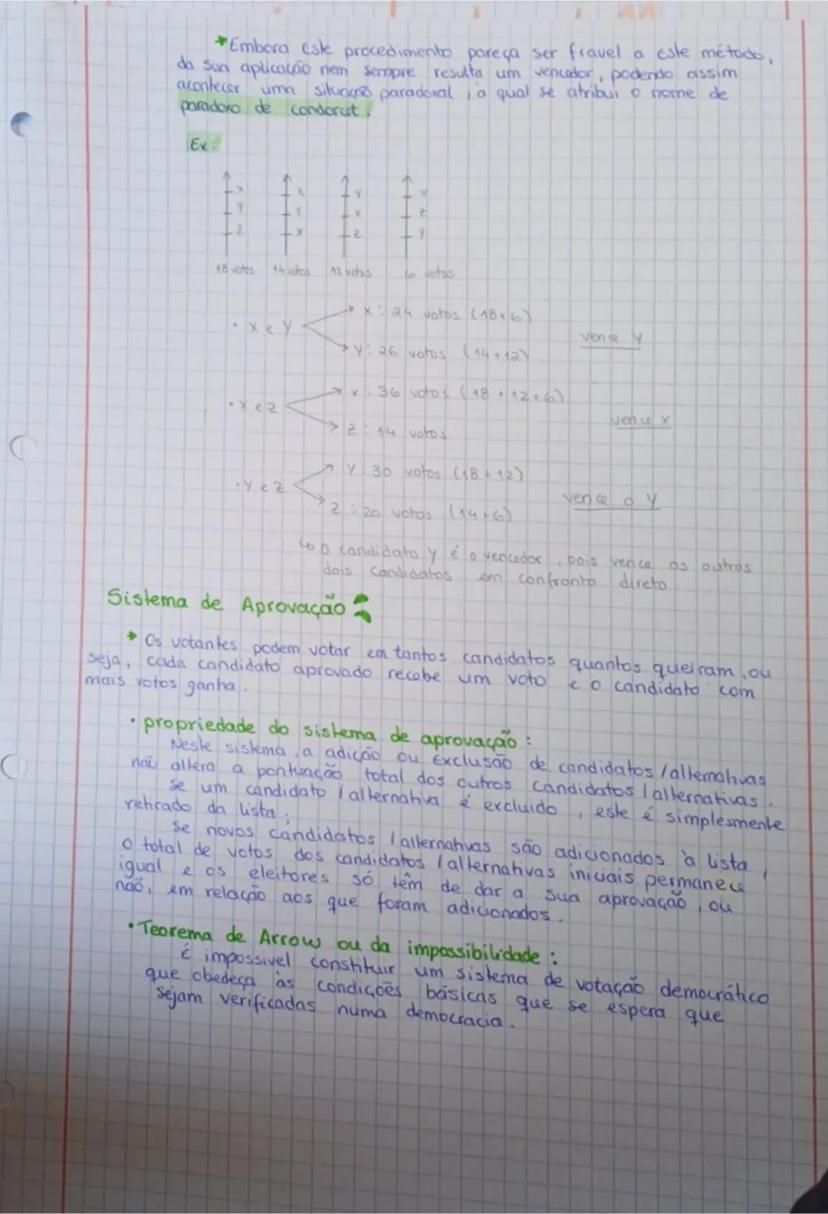 *Embora este procedimento pareça ser fiavel a este método,
da sua aplicação nem sempre resulta um vencedor, podendo assim
acontecer uma situação paradoxal, a qual se atribui o nome de
paradoxo de condorcet.
Ex:
x y x
y y x z
z x z y
18 votos 14 votos 12 votos 6 votos
x: 24 votos (18+6)
• x e y vence y
y: 26 votos (14+12)
x: 36 votos (18+12+6)
• x e z vence x
z: 14 votos
y: 30 votos (18+12)
• y e z vence o y
z: 20 votos (14+6)
↳ o candidato y é o vencedor, pois vence os outros
dois candidatos em confronto direto
Sistema de Aprovação:
* Os votantes podem votar em tantos candidatos quantos queiram, ou
seja, cada candidato aprovado recebe um voto e o candidato com
mais votos ganha.
• propriedade do sistema de aprovação:
Neste sistema, a adição ou exclusão de candidatos/alternativas
não altera a pontuação total dos outros candidatos/alternativas.
se um candidato/alternativa é excluido, este é simplesmente
retirado da lista;
se novos candidatos/alternativas são adicionados à lista,
o total de votos dos candidatos/alternativas iniciais permanece
igual e os eleitores só têm de dar a sua aprovação, ou
não, em relação aos que foram adicionados.
• Teorema de Arrow ou da impossibilidade:
É impossivel constituir um sistema de votação democrático
que obedeça às condições básicas que se espera que
sejam verificadas numa democracia.